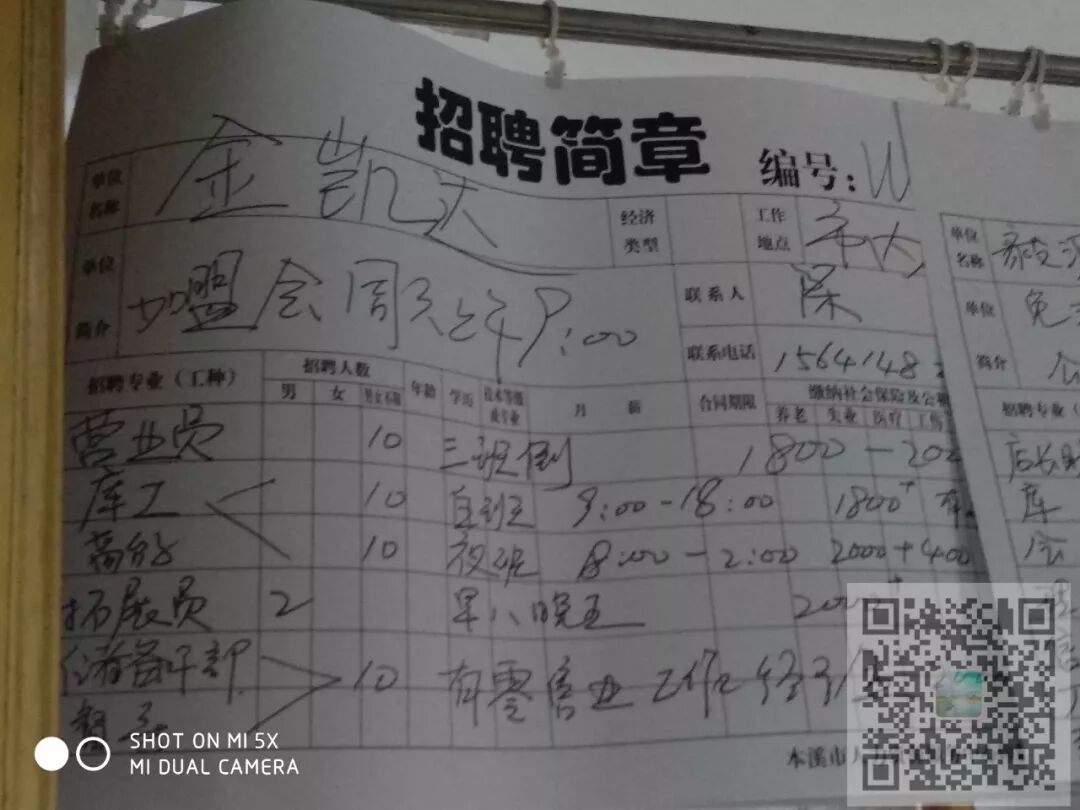 招聘简章
编号:
单位名称 金凯 经济类型 工作地点
单位简介 加盟会周天上午9:00 联系人
联系电话 1564148
招聘专业(工种) 招聘人数 男 女 男女不限 年龄 学历 技术等级或专业 月薪 合同期限 缴纳社会保险及公 养老 失业 医疗 工伤
营业员 10 三班倒 1800-200
库工 10 白班 9:00-18:00 1800+
10 夜班 8:00-2:00 2000+400
拓展员 2 早八晚五
储备干部 10 有零售业工作经
本溪市人力
单位名称
单位简介
招聘专业(
店长
库
SHOT ON MI 5X
MI DUAL CAMERA